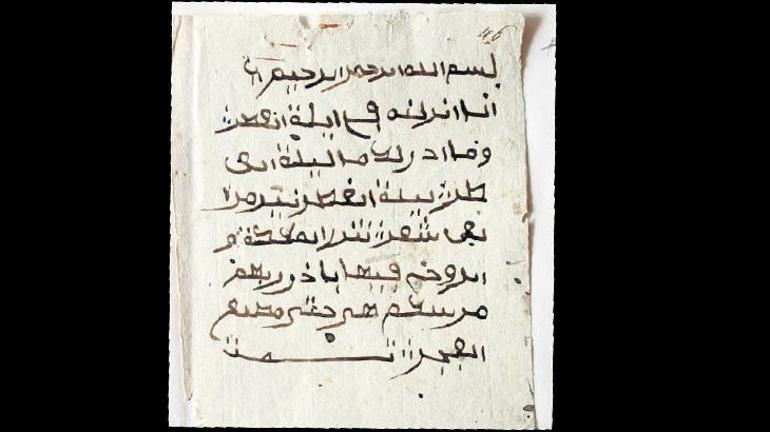 46
بسم الله الرحمن الرحيم
انا انزلنه في ليلة القدر
وما ادريك ما ليلة الق
در ليلة القدر خير من ا
لف شهر تنزل الملئكة و
الروح فيها باذن ربهم
من سلم هي حتى مطلع
الفجر تمت